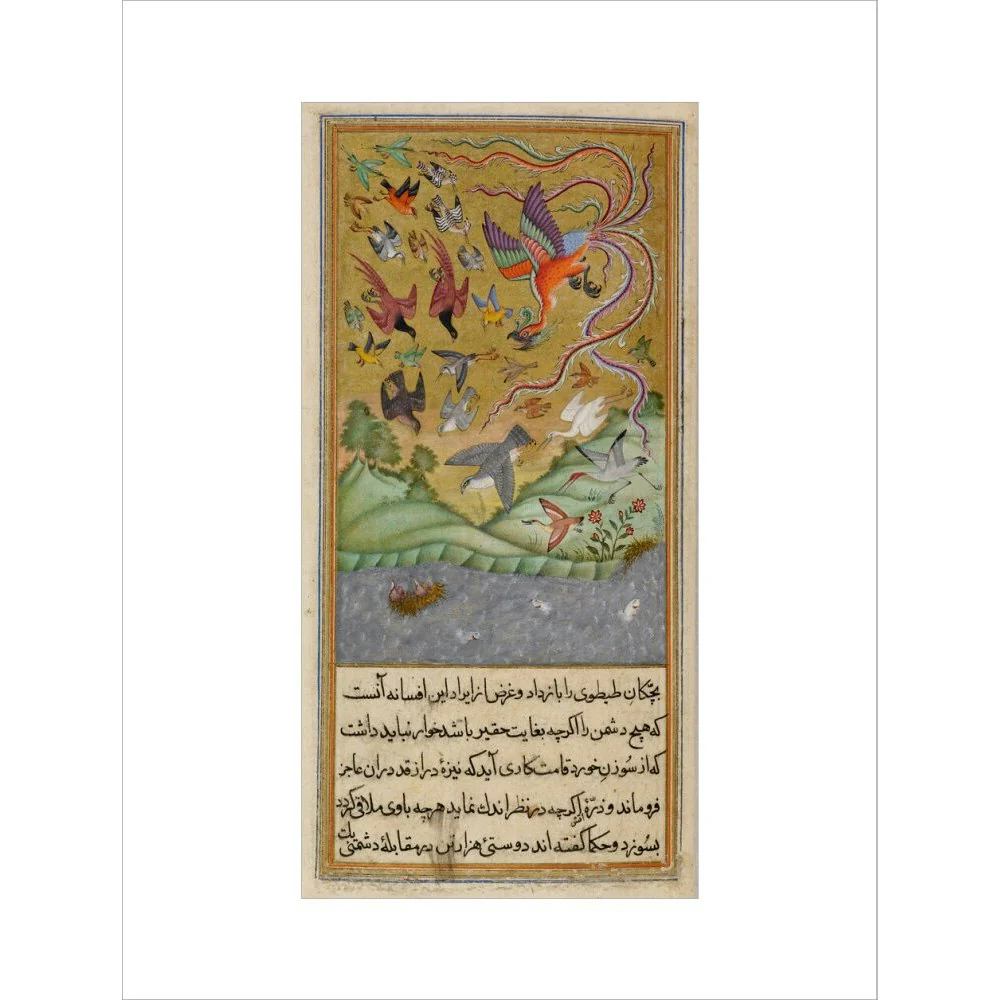 بچّکان طیطوی را بازداد و غرض از ایراد این افسانه آنست
که هیچ دشمن را اکرچه بغایت حقیر باشد خوار نباید داشت
که از سوزنِ خورد قامت کاری آید که نیزهٔ دراز قد در ان عاجز
فروماند و ذرّهٔ آتش اکرچه در نظر اندك نماید هرچه باوی ملاقی کردد
بسوزد و حکما کفته اند دوستیٔ هزار تن در مقابلهٔ دشمنیٔ یك